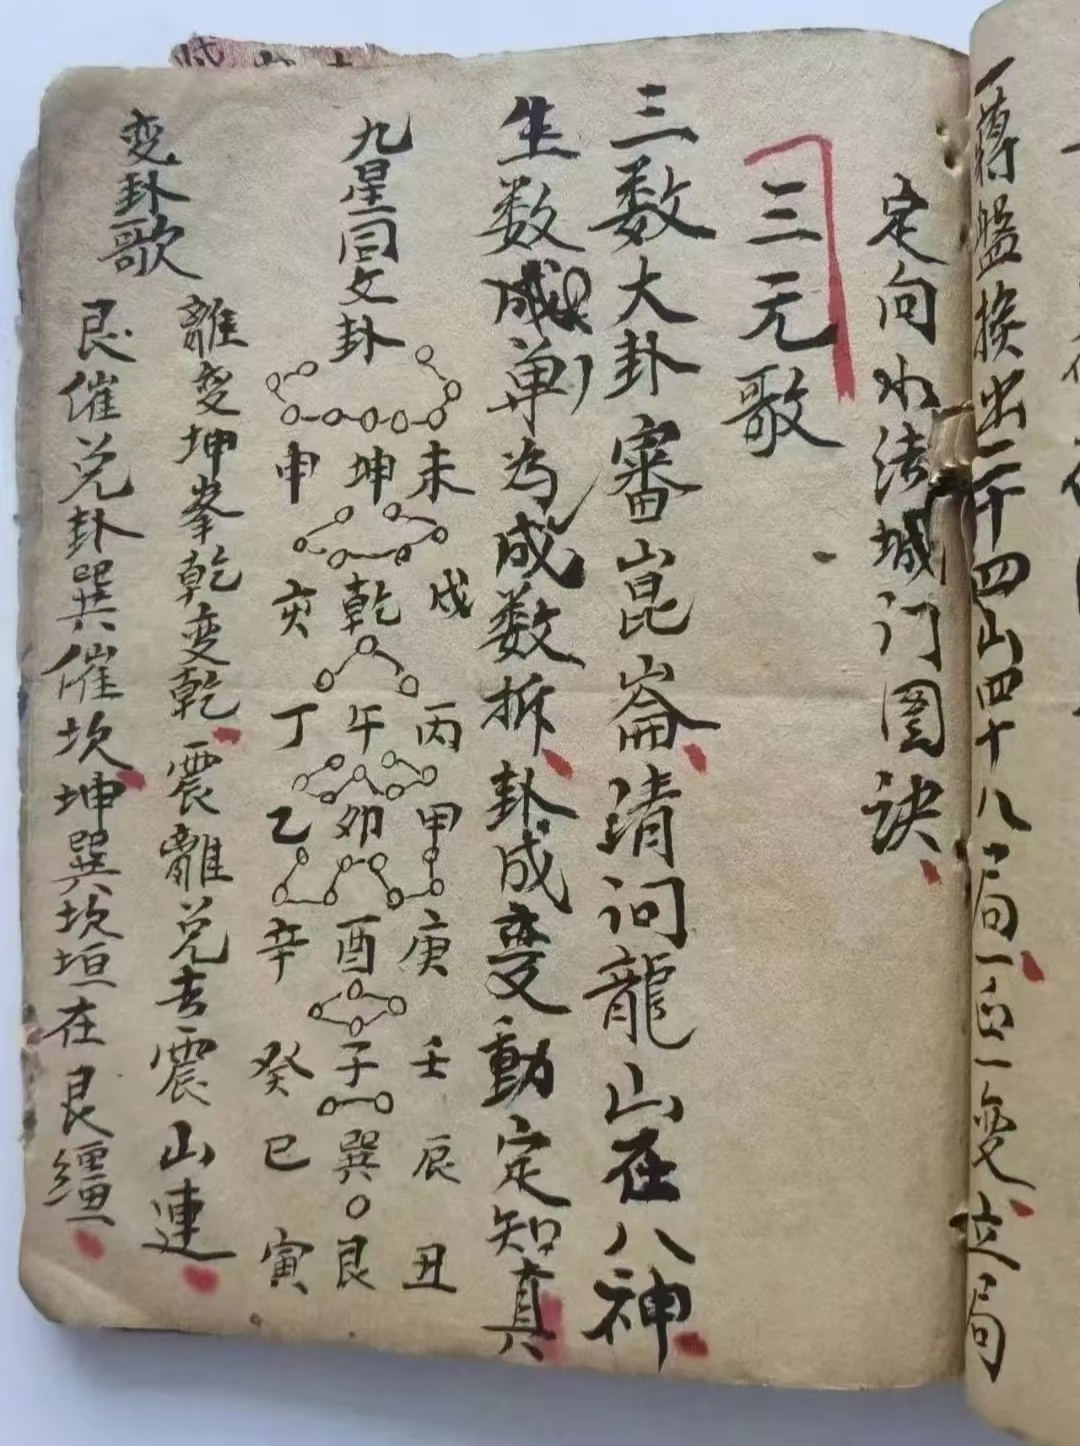 一藉盤換出二十四山四十八局一正一变立局
定向水法城门图诀
三元歌
三数大卦審崑崙请问龍山在八神
生数成单为成数拆卦成变動定知真
九星同文卦
申 坤 未
亥 乾 戌
丁 午 丙
乙 卯 甲
辛 酉 庚
癸 子 壬
巳 巽 辰
寅 艮 丑
变卦歌
離变坤峯乾变乾震離兑去震山連
艮催兑卦巽催坎坤巽坎垣在艮纒